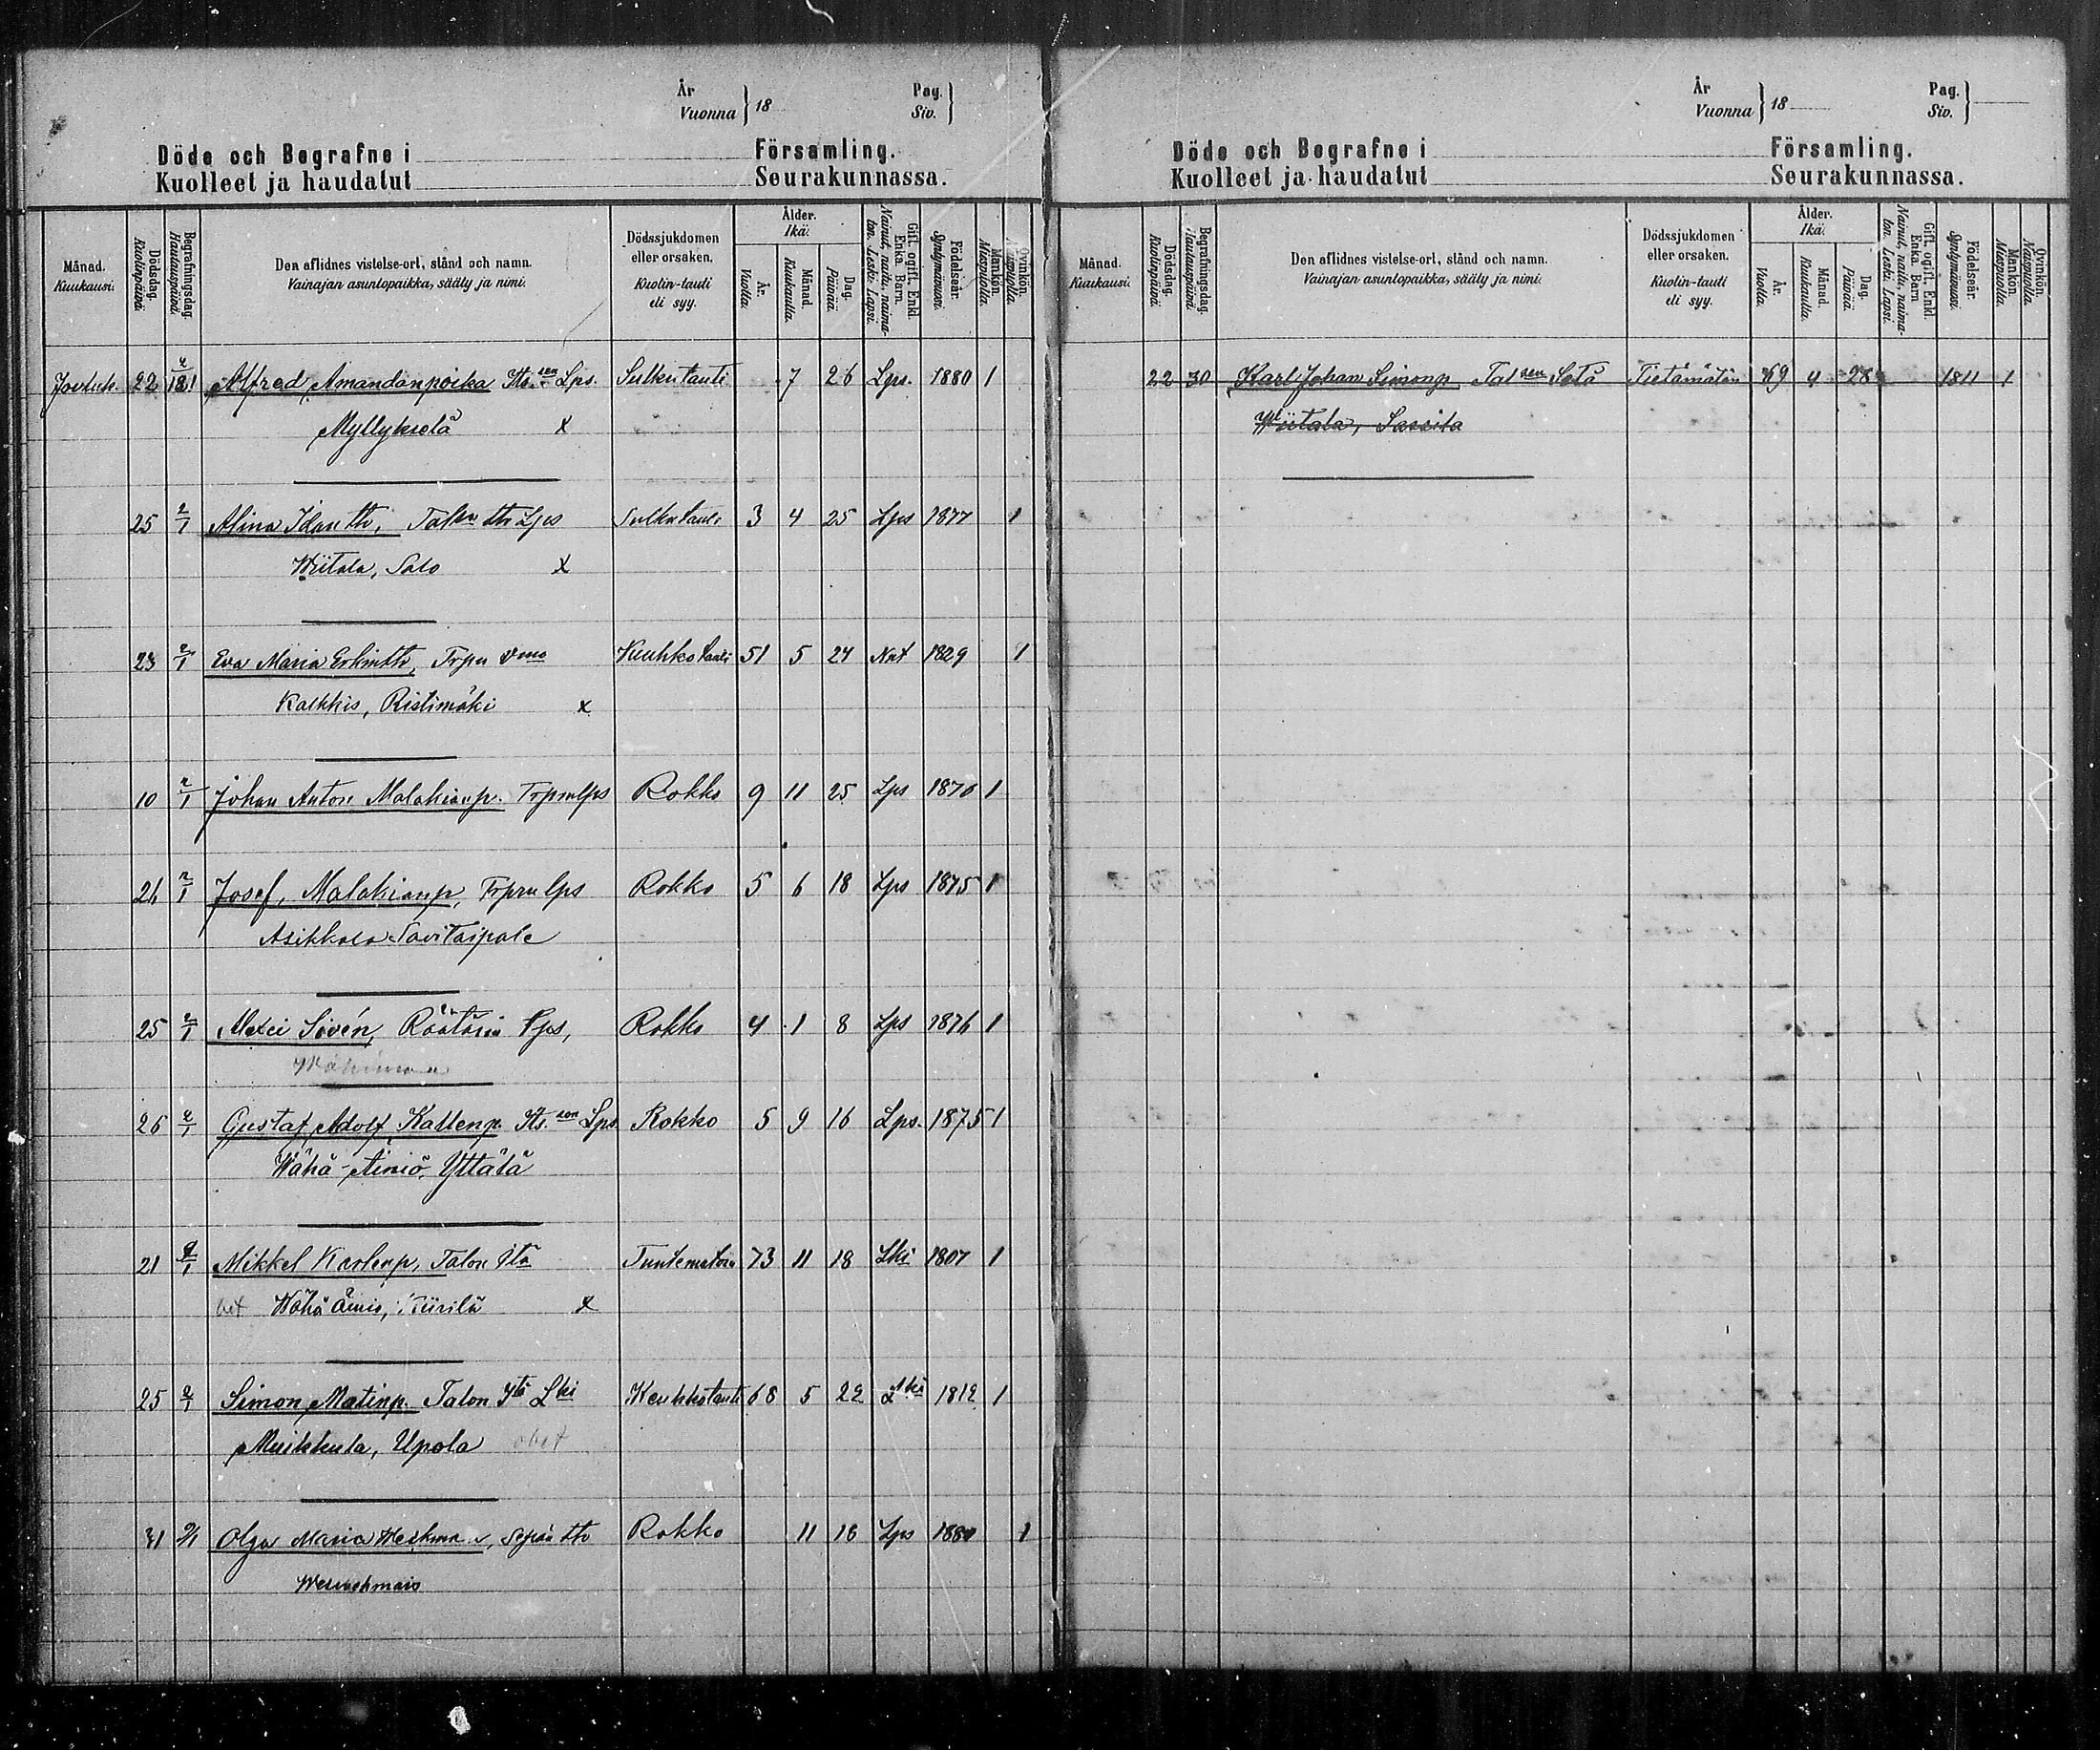 År
Vuonna } 18
Pag.
Siv. }
Döde och Begrafne i Församling.
Kuolleet ja haudatut Seurakunnassa.
Månad. Kuukausi.
Dödsdag. Kuolinpäivä.
Begrafningsdag. Hautauspäivä.
Den aflidnes vistelse-ort, stånd och namn.
Vainajan asuntopaikka, sääty ja nimi.
Dödssjukdomen eller orsaken.
Kuolin-tauti eli syy.
Ålder. Ikä.
År. Vuotta.
Månad. Kuukautta.
Dag. Päivää.
Gift, ogift, Enkl. Enka. Barn.
Nainut, naitu, naimaton. Leski. Lapsi.
Födelseår. Syntymävuosi.
Mankön. Miespuolia.
Qvinkön. Naispuolia.
Jouluk. 22 Alfred Amandanpoika Its. sen Lps. Sulku tauti 7 26 Lps. 1880 1
Myllykselä x
25 2/1 Alina Idan tr, Talln tr Lps Sulku tauti 3 4 25 Lps 1877 1
Wiitala, Salo x
23 2/1 Eva Maria Erkintr, Trpn vmo Keuhko tauti 51 5 24 Nnt 1829 1
Kalkkis, Ristimäki x
10 2/1 Johan Anton Malakianp. Trpn lps Rokko 9 11 25 Lps 1870 1
26 2/1 Josef, Malakianp, Trpn lps Rokko 5 6 18 Lps 1875 1
Asikkala Savitaipale
25 2/1 Alexei Sivén, Räätärin Lps, Rokko 4 1 8 Lps 1876 1
26 2/1 Gustaf Adolf Kallenp. Its. sen Lps Rokko 5 9 16 Lps. 1875 1
Wähä-Äiniö, Yttälä
21 9/1 Mikkel Karlenp, Talon Itä Tuntematoin 73 11 18 Lki 1807 1
Wähä Äinio, Kiirilä x
25 2/1 Simon Matinp. Talon Itä Lki Keuhkotauti 68 5 22 Lki 1812 1
Muikkula, Upola
31 2/1 Olga Maria Weckman, Sepän tr Rokko 11 16 Lps 1880 1
År
Vuonna } 18
Pag.
Siv. }
Döde och Begrafne i Församling.
Kuolleet ja haudatut Seurakunnassa.
Månad. Kuukausi.
Dödsdag. Kuolinpäivä.
Begrafningsdag. Hautauspäivä
Den aflidnes vistelse-ort, stånd och namn.
Vainajan asuntopaikka, sääty ja nimi.
Dödssjukdomen eller orsaken.
Kuolin-tauti eli syy.
Ålder. Ikä.
År. Vuotta.
Månad. Kuukautta.
Dag. Päivää.
Gift, ogift, Enkl. Enka. Barn
Nainut, naitu, naimaton. Leski. Lapsi.
Födelseår. Syntymävuosi.
Mankön. Miespuolia.
Qvinkön. Naispuolia.
22 30 Karl Johan Simonp Tal sen Setä Tietämätön 69 4 28 1811 1
Wiitala, Sassila